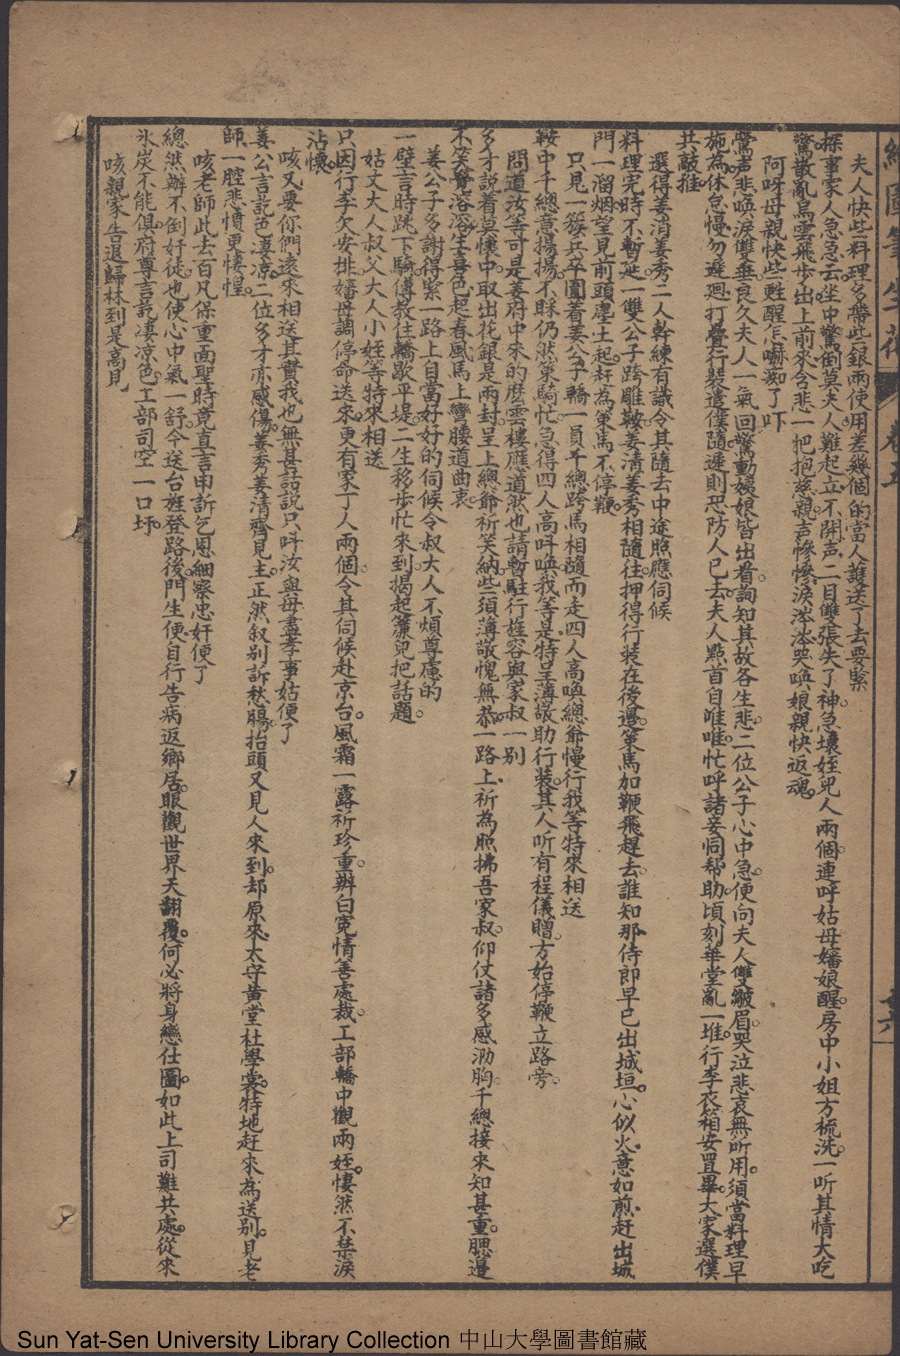 夫人快些料理多帶些銀兩使用差幾個的當人護送了去要緊
探事家人急急云坐中驚倒莫夫人難起立不開声二目雙張失了神急壞姪兒人兩個連呼姑母嬸娘醒房中小姐方梳洗一听其情大吃
驚散亂烏雲飛步出上前來含悲一把抱慈親声慘慘淚涔涔哭喚娘親快返魂
阿呀母親快些甦醒怎嚇痴了吓
驚声悲喚淚雙垂良久夫人一氣回驚動姨娘皆出看詢知其故各生悲二位公子心中急便向夫人雙皺眉哭泣悲哀無所用須當料理早
施為休怠慢勿遲迴打疊行裝遣僕隨遲則恐防人已去夫人點首自唯唯忙呼諸妾同帮助頃刻華堂亂一堆行李衣箱安置畢大家選僕
共敲推
選得姜消姜秀二人幹練有識令其隨去中途照應伺候
料理完時不暫延一雙公子跨雕鞍姜清姜秀相隨往押得行裝在後邊策馬加鞭飛趕去誰知那侍郎早已出城垣心似火意如煎赶出城
門一溜烟望見前頭塵土起赶為策馬不停鞭
只見一簇兵卒圍着姜公子轎一員千總跨馬相隨而走四人高喚總爺慢行我等特來相送
鞍中千總意揚揚不睬仍然策騎忙急得四人高呌喚我等是特呈薄敬助行裝其人听有程儀贈方始停鞭立路旁
問道汝等可是姜府中來的麽雲樓應道然也請暫駐行旌容與家叔一別
多才說着莫懷中取出花銀是兩封呈上總爺祈笑納些須薄敬愧無恭一路上祈為照拂吾家叔仰仗諸多感泐胸千總接來知甚重腮邊
不笑覺溶溶生喜色起春風馬上彎腰道曲衷
姜公子多謝得緊一路上自當好好的伺候令叔大人不煩尊慮的
一壁言時跳下騎傳教住轎歇平堤二生移步忙來到揭起簾兒把話題
姑丈大人叔父大人小姪等特來相送
只因行李欠安排嬸母調停命送來更有家丁人兩個令其伺候赴京台風霜一露祈珍重辦白寃情善處裁工部轎中觀兩姪悽然不禁淚
沾懷
咳又要你們遠來相送其實我也無甚話說只呌汝與母盡孝事姑便了
姜公言訖色凄凉二位多才亦感傷姜秀姜清齊見主正然叙別訴愁腸抬頭又見人來到却原來太守黃堂杜學裳特地赶來為送別見老
師一腔悲憤更悽惶
咳老師此去百凡保重面聖時竟直言申訴乞恩細察忠奸便了
總然辦不倒奸徒也使心中氣一舒今送台旌登路後門生便自行告病返鄉居眼觀世界天翻覆何必將身戀仕圖如此上司難共處從來
氷炭不能俱府尊言訖凄凉色工部司空一口呼
咳親家告退歸林到是高見
Sun Yat-Sen University Library Collection 中山大學圖書館藏